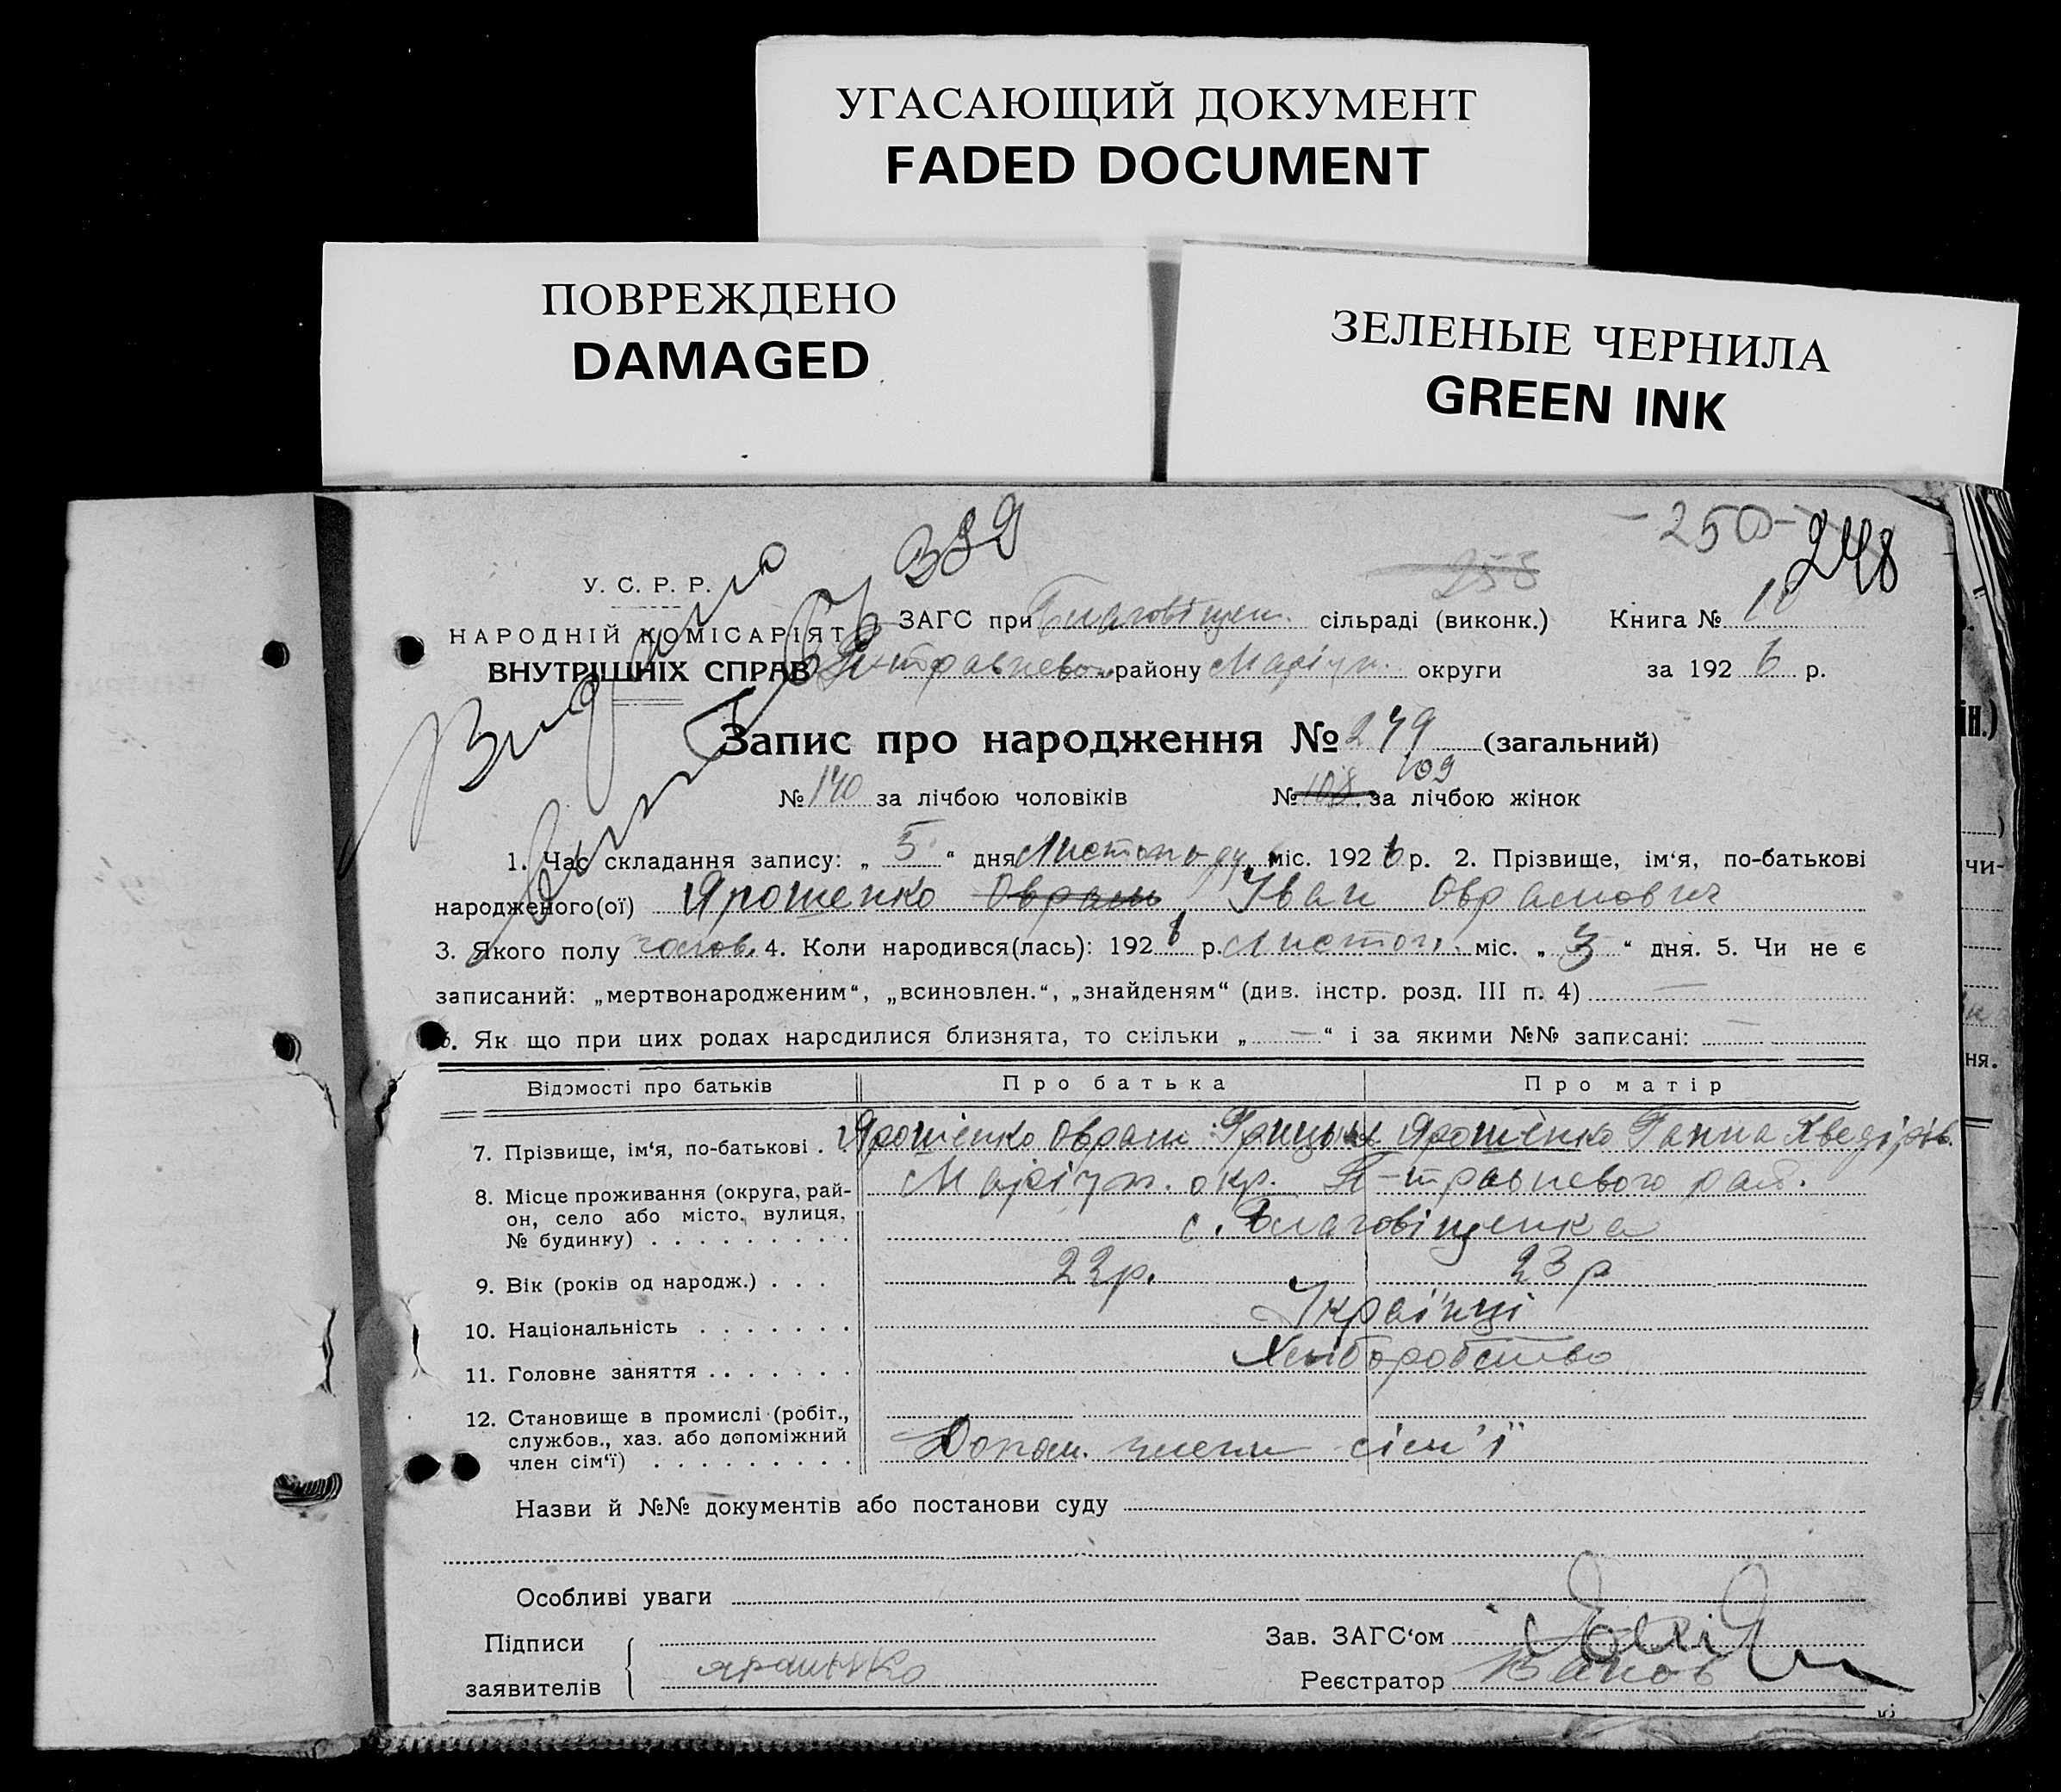 УГАСАЮЩИЙ ДОКУМЕНТ
FADED DOCUMENT
ПОВРЕЖДЕНО
DAMAGED
ЗЕЛЕНЫЕ ЧЕРНИЛА
GREEN INK
-250-
248
253
339
Видано
У. С. Р. Р.
НАРОДНІЙ КОМІСАРІЯТ
ВНУТРІШНІХ СПРАВ
ЗАГС при Благовіщен. сільраді (виконк.) Книга №
району Маріуп. округи за 1926 р.
Запис про народження № 249 (загальний)
№ 140 за лічбою чоловіків № 108 109 за лічбою жінок
1. Час складання запису: „ 5 “ дня Листопаду міс. 1926 р. 2. Прізвище, ім‘я, по-батькові
народженого(ої) Ярошенко Оврам Іван Оврамович
3. Якого полу чолов. 4. Коли народився(лась): 1926 р. Листоп. міс. „ 3 “ дня. 5. Чи не є
записаний: „мертвонародженим“, „всиновлен.“, „знайденям“ (див. інстр. розд. III п. 4) —
6. Як що при цих родах народилися близнята, то скільки „ — “ і за якими №№ записані: —
Відомості про батьків Про батька Про матір
7. Прізвище, ім‘я, по-батькові . . Ярошенко Оврам Грицьк Ярошенко Ганна Хведірів.
8. Місце проживання (округа, рай-
он, село або місто, вулиця,
№ будинку) . . . . . . . . .
Маріуп. окр. П-травневого рай.
с. Благовіщенка
9. Вік (років од народж.) . . . 22р. 23р
10. Національність . . . . . . . Українці
11. Головне заняття . . . . . . . Хліборобство
12. Становище в промислі (робіт.,
службов., хаз. або допоміжний
член сім‘ї) . . . . . . . . .
Допом. члени сім'ї
Назви й №№ документів або постанови суду
Особливі уваги
Підписи
заявителів
Ярошенко
Зав. ЗАГС‘ом
Реєстратор